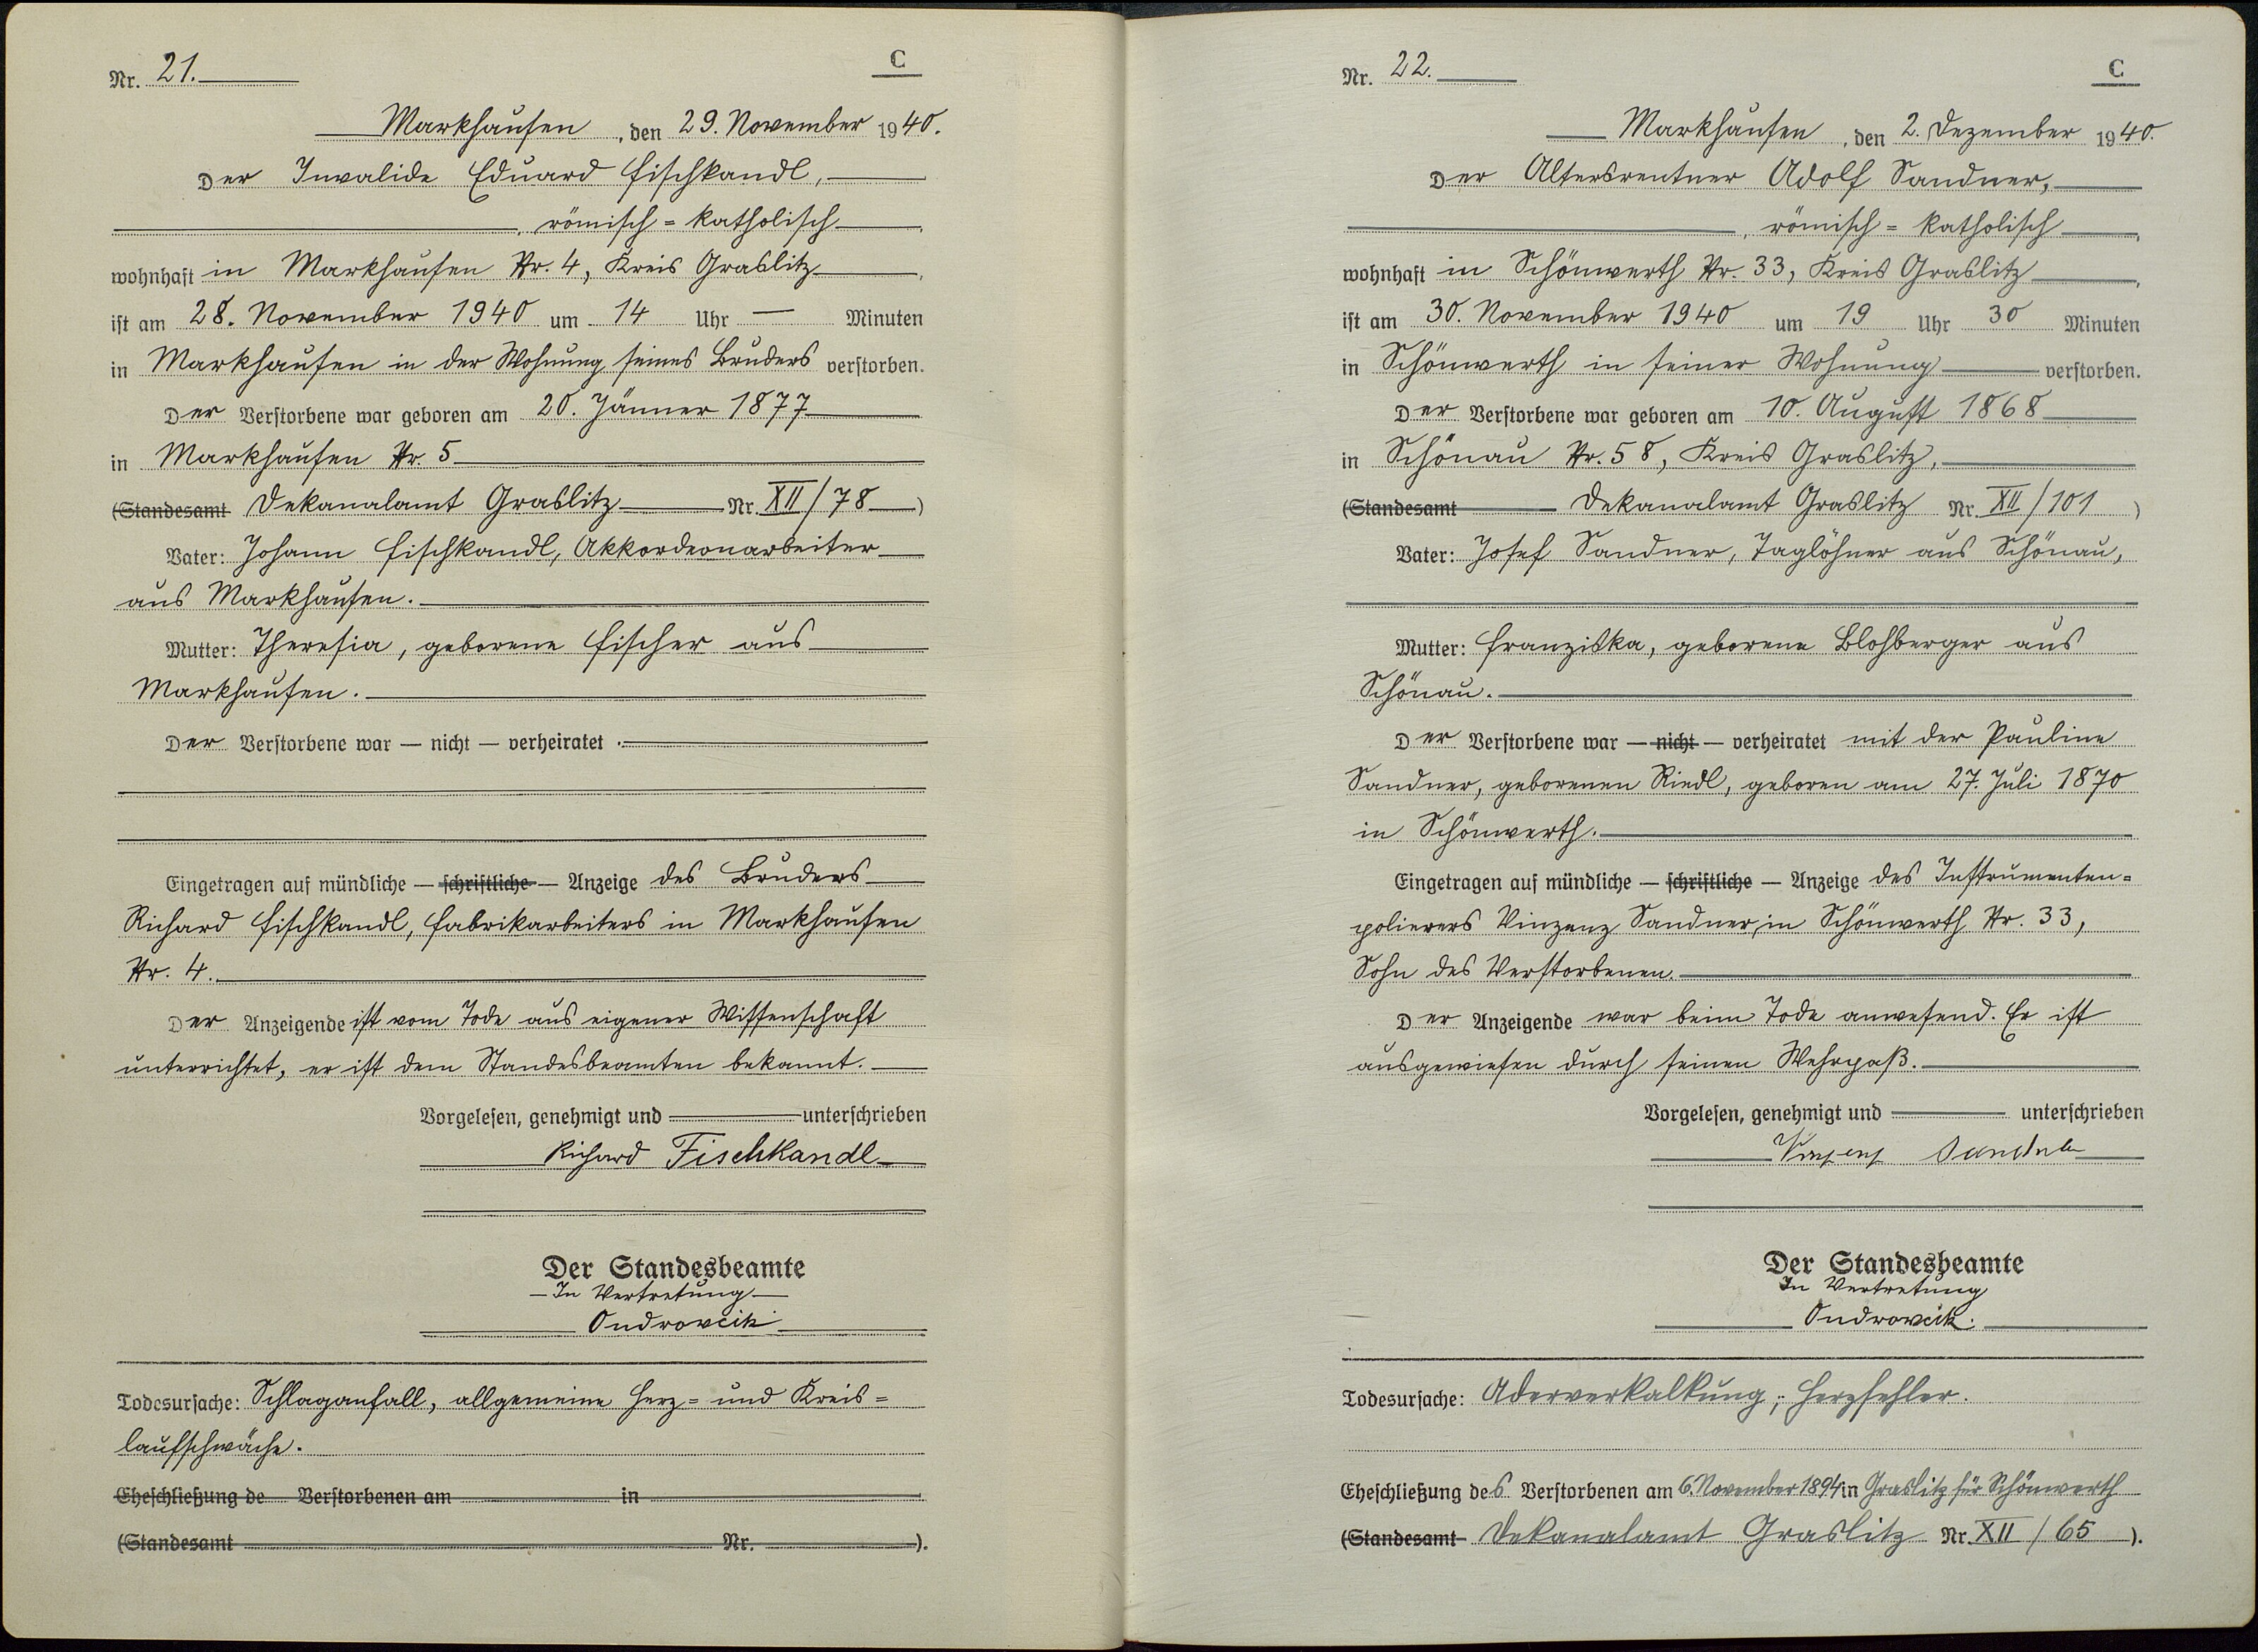 Nr. 21.
C
Markhausen, den 29. November 1940.
Der Invalide Eduard Fischkandl,
, römisch=katholisch,
wohnhaft in Markhausen Nr. 4, Kreis Graslitz,
ist am 28. November 1940 um 14 Uhr — Minuten
in Markhausen in der Wohnung seines Bruders verstorben.
Der Verstorbene war geboren am 20. Jänner 1877
in Markhausen Nr. 5
(Standesamt Dekanalamt Graslitz Nr. XII/78)
Vater: Johann Fischkandl, Akkordeonarbeiter
aus Markhausen.
Mutter: Theresia, geborene Fischer aus
Markhausen.
Der Verstorbene war — nicht — verheiratet.
Eingetragen auf mündliche — schriftliche — Anzeige des Bruders
Richard Fischkandl, Fabrikarbeiters in Markhausen
Nr. 4.
Der Anzeigende ist vom Tode aus eigener Wissenschaft
unterrichtet, er ist dem Standesbeamten bekannt.
Vorgelesen, genehmigt und unterschrieben
Richard Fischkandl
Der Standesbeamte
In Vertretung
Ondrovcik
Todesursache: Schlaganfall, allgemeine Herz= und Kreis=
laufschwäche.
Eheschließung de Verstorbenen am in
(Standesamt Nr. ).
Nr. 22.
C
Markhausen, den 2. Dezember 1940.
Der Altersrentner Adolf Sandner,
, römisch=katholisch,
wohnhaft in Schönwerth Nr. 33, Kreis Graslitz,
ist am 30. November 1940 um 19 Uhr 30 Minuten
in Schönwerth in seiner Wohnung verstorben.
Der Verstorbene war geboren am 10. August 1868
in Schönau Nr. 58, Kreis Graslitz,
(Standesamt Dekanalamt Graslitz Nr. XII/101)
Vater: Josef Sandner, Taglöhner aus Schönau,
Mutter: Franziska, geborene Blohberger aus
Schönau.
Der Verstorbene war — nicht — verheiratet mit der Pauline
Sandner, geborenen Riedl, geboren am 27. Juli 1870
in Schönwerth.
Eingetragen auf mündliche — schriftliche — Anzeige des Instrumenten=
polierers Vinzenz Sandner, in Schönwerth Nr. 33,
Sohn des Verstorbenen.
Der Anzeigende war beim Tode anwesend. Er ist
ausgewiesen durch seinen Wehrpaß.
Vorgelesen, genehmigt und unterschrieben
Vinzenz Sandner
Der Standesbeamte
In Vertretung
Ondrovcik.
Todesursache: Aderverkalkung; Herzfehler.
Eheschließung des Verstorbenen am 6. November 1894 in Graslitz für Schönwerth
(Standesamt Dekanalamt Graslitz Nr. XII/65).